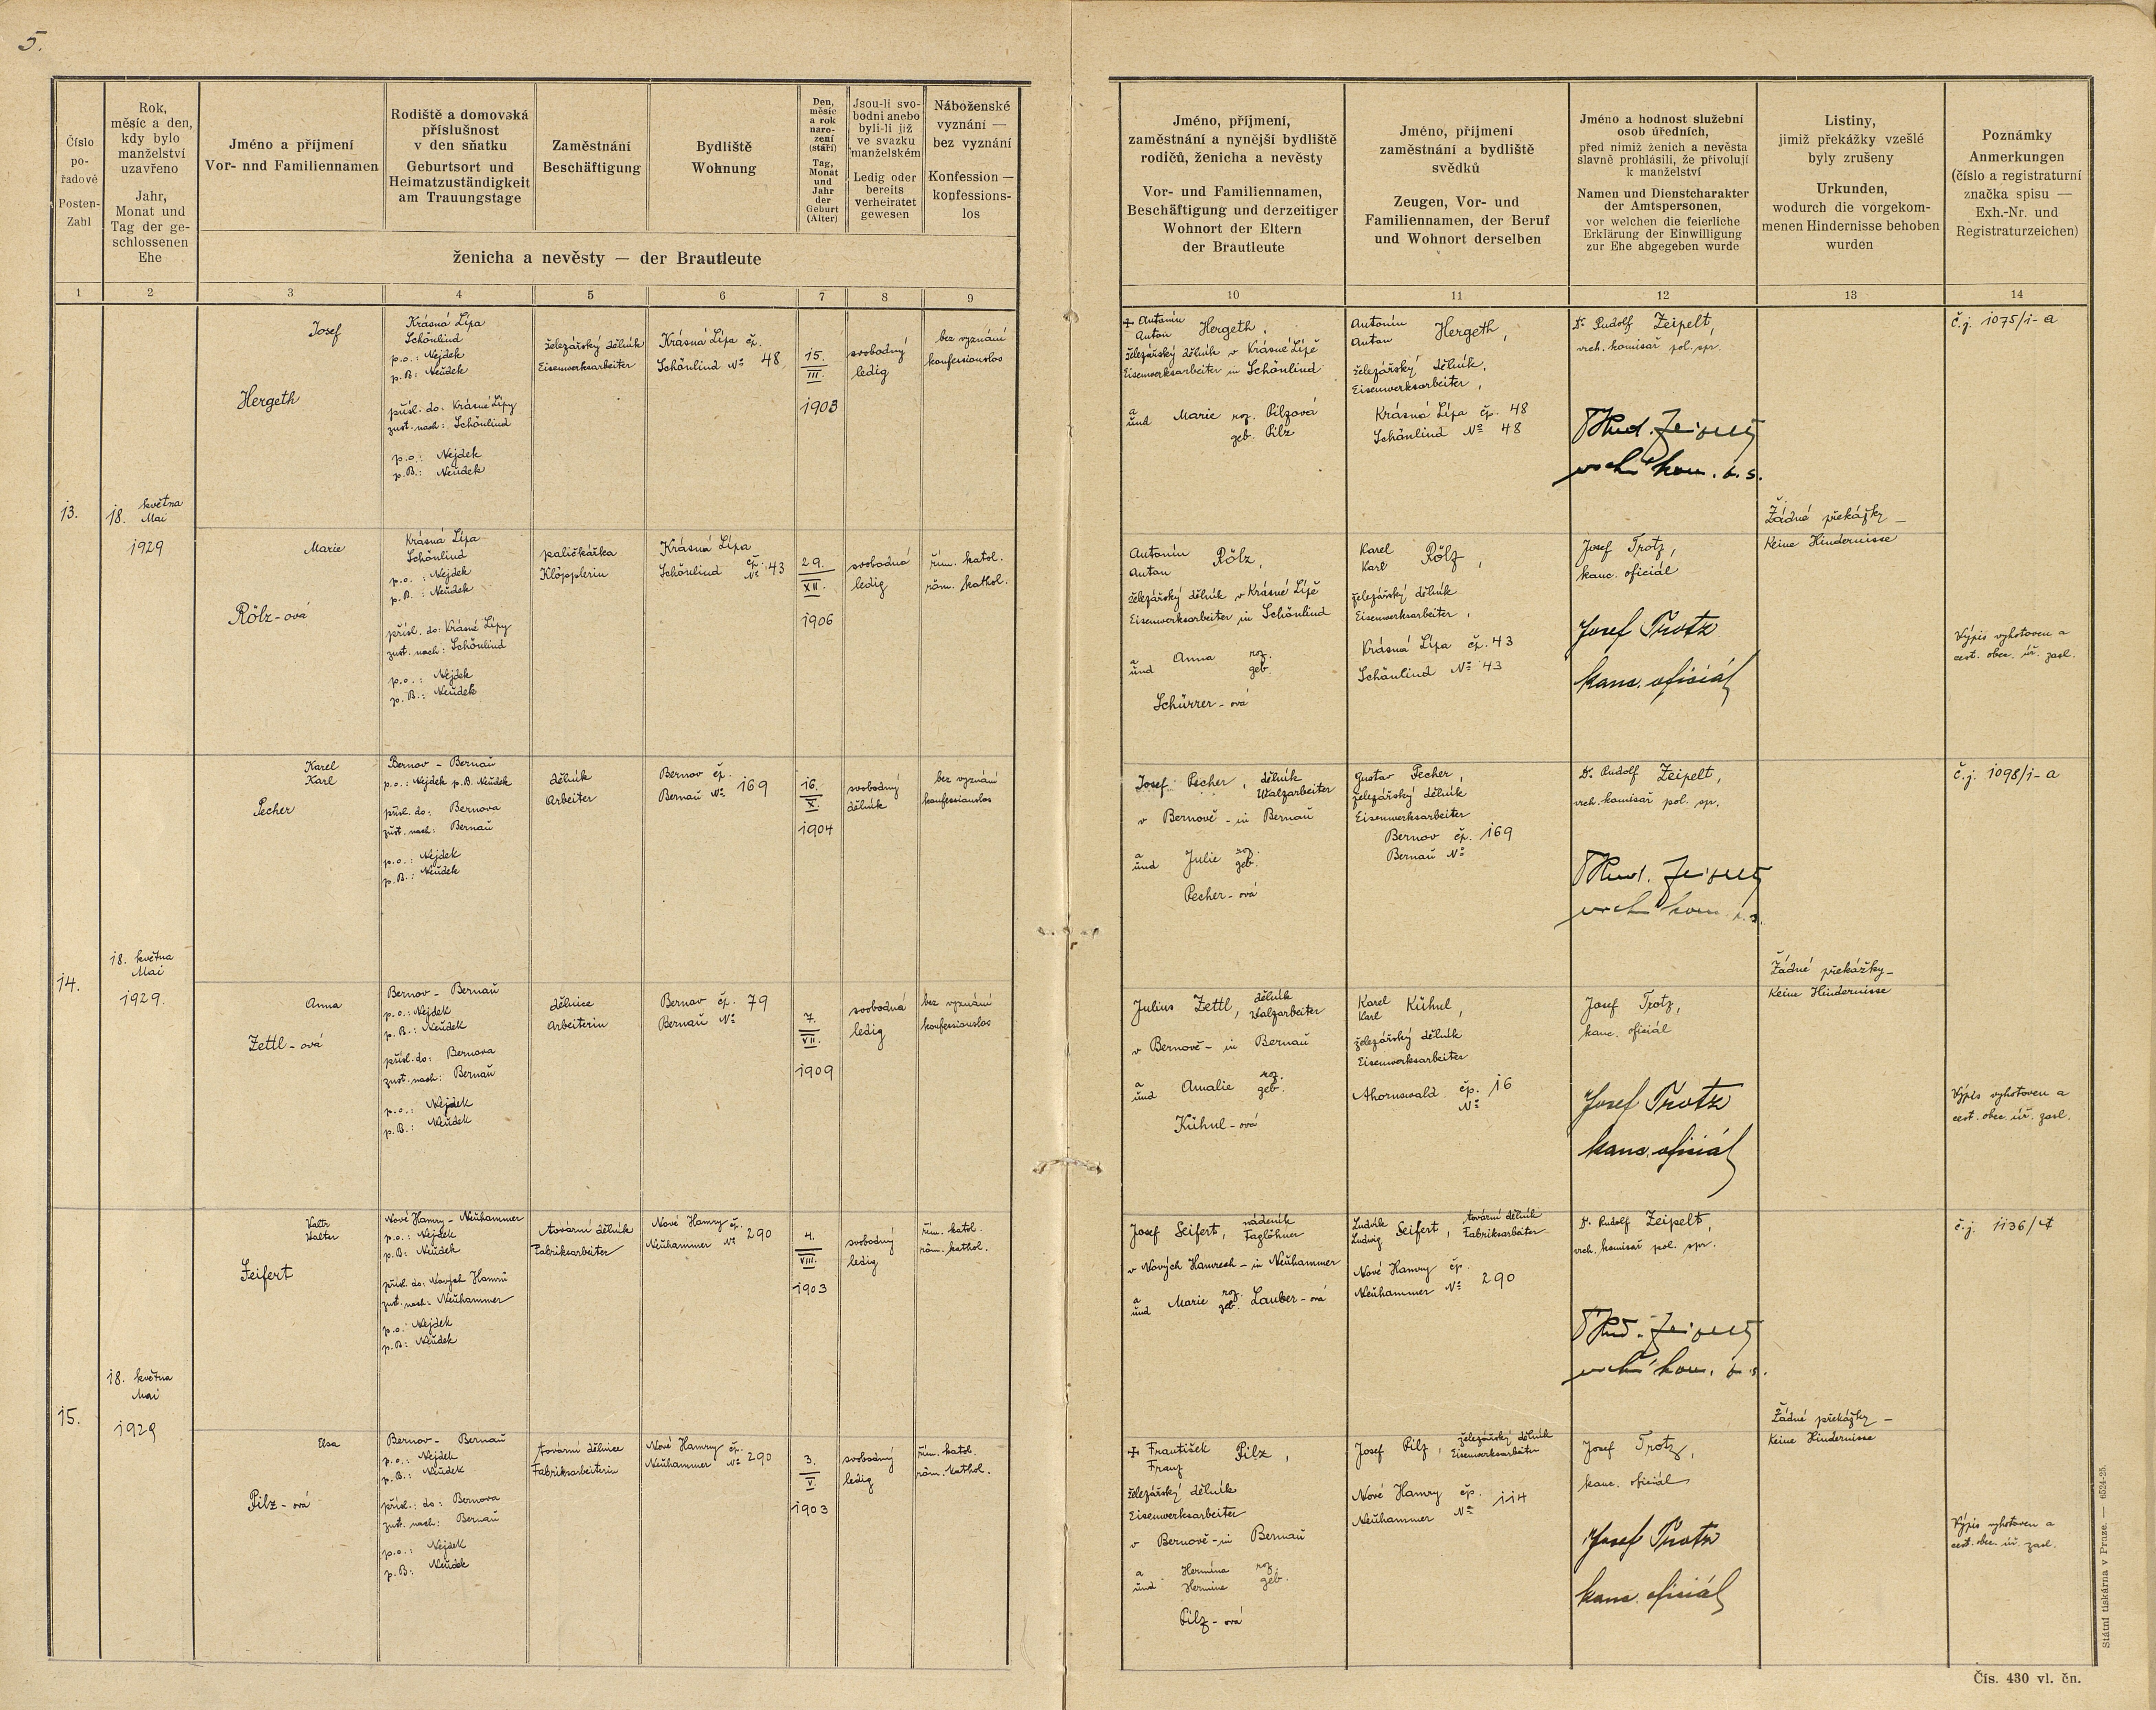 5.
Číslo
po-
řadové
Posten-
Zahl
Rok,
měsíc a den,
kdy bylo
manželství
uzavřeno
Jahr,
Monat und
Tag der ge-
schlossenen
Ehe
Jméno a příjmení
Vor- nnd Familiennamen
Rodiště a domovská
příslušnost
v den sňatku
Geburtsort und
Heimatzuständigkeit
am Trauungstage
Zaměstnání
Beschäftigung
Bydliště
Wohnung
Den,
měsíc
a rok
naro-
zení
(stáří)
Tag,
Monat
und
Jahr
der
Geburt
(Alter)
Jsou-li svo-
bodni anebo
byli-li již
ve svazku
manželském
Ledig oder
bereits
verheiratet
gewesen
Náboženské
vyznání —
bez vyznání
Konfession —
konfessions-
los
ženicha a nevěsty — der Brautleute
Jméno, příjmení,
zaměstnání a nynější bydliště
rodičů, ženicha a nevěsty
Vor- und Familiennamen,
Beschäftigung und derzeitiger
Wohnort der Eltern
der Brautleute
Jméno, příjmení
zaměstnání a bydliště
svědků
Zeugen, Vor- und
Familiennamen, der Beruf
und Wohnort derselben
Jméno a hodnost služební
osob úředních,
před nimiž ženich a nevěsta
slavně prohlásili, že přivolují
k manželství
Namen und Dienstcharakter
der Amtspersonen,
vor welchen die feierliche
Erklärung der Einwilligung
zur Ehe abgegeben wurde
Listiny,
jimiž překážky vzešlé
byly zrušeny
Urkunden,
wodurch die vorgekom-
menen Hindernisse behoben
wurden
Poznámky
Anmerkungen
(číslo a registraturní
značka spisu —
Exh.-Nr. und
Registraturzeichen)
1 2 3 4 5 6 7 8 9 10 11 12 13 14
13.
18. května
Mai
1929
Josef
Hergeth
Krásná Lípa
Schönlind
p.o.: Nejdek
p.B.: Neudek
přísl. do: Krásné Lípy
zust. nach: Schönlind
p.o.: Nejdek
p.B.: Neudek
železářský dělník
Eisenwerksarbeiter
Krásná Lípa čp.
Schönlind No 48
15.
III.
1903
svobodný
ledig
bez vyznání
konfessionslos
+ Antonín
Anton Hergeth,
železářský dělník v Krásné Lípě
Eisenwerksarbeiter in Schönlind
a
und Marie roz. Pilzová
geb. Pilz
Antonín
Anton Hergeth,
železářský dělník,
Eisenwerksarbeiter,
Krásná Lípa čp. 48
Schönlind No 48
Dr. Rudolf Zeipelt,
vrch. komisař pol. spr.
Žádné překážky —
Keine Hindernisse
č.j. 1075/i-a
Marie
Rölz-ová
Krásná Lípa
Schönlind
p.o.: Nejdek
p.B.: Neudek
přísl. do: Krásné Lípy
zust. nach: Schönlind
p.o.: Nejdek
p.B.: Neudek
paličkářka
Klöpplerin
Krásná Lípa
Schönlind čp. No 43
29.
XII.
1906
svobodná
ledig
řím. katol.
röm. kathol.
Antonín
Anton Rölz,
železářský dělník v Krásné Lípě
Eisenwerksarbeiter in Schönlind
a
und Anna roz.
geb.
Schürrer-ová
Karel
Karl Rölz,
železářský dělník
Eisenwerksarbeiter,
Krásná Lípa čp. 43
Schönlind No 43
Josef Trotz,
kanc. oficiál
Josef Trotz
kanc. oficiál
Výpis vyhotoven a
cest. obec. úř. zasl.
14.
18. května
Mai
1929.
Karel
Karl
Pecher
Bernov - Bernau
p.o.: Nejdek p.B. Neudek
přísl. do: Bernova
zust. nach: Bernau
p.o.: Nejdek
p.B.: Neudek
dělník
Arbeiter
Bernov čp.
Bernau No 169
16.
X.
1904
svobodný
dělník
bez vyznání
konfessionslos
Josef Pecher, dělník
Walzarbeiter
v Bernově - in Bernau
a
und Julie roz.
geb.
Pecher-ová
Gustav Pecher,
železářský dělník
Eisenwerksarbeiter
Bernov čp. 169
Bernau No
Dr. Rudolf Zeipelt,
vrch. komisař pol. spr.
Žádné překážky —
Keine Hindernisse
č.j. 1098/i-a
Anna
Zettl-ová
Bernov - Bernau
p.o.: Nejdek
p.B.: Neudek
přísl. do: Bernova
zust. nach: Bernau
p.o.: Nejdek
p.B.: Neudek
dělnice
Arbeiterin
Bernov čp. 79
Bernau No
7.
VII.
1909
svobodná
ledig
bez vyznání
konfessionslos
Julius Zettl, dělník
Walzarbeiter
v Bernově - in Bernau
a
und Amalie roz.
geb.
Kühnl-ová
Karel
Karl Kühnl,
železářský dělník
Eisenwerksarbeiter
Ahornswald čp. 16
No
Josef Trotz,
kanc. oficiál
Josef Trotz
kanc. oficiál
Výpis vyhotoven a
cest. obec. úř. zasl.
15.
18. května
Mai
1929
Valtr
Walter
Seifert
Nové Hamry - Neuhammer
p.o.: Nejdek
p.B.: Neudek
přísl. do: Nových Hamrů
zust. nach: Neuhammer
p.o.: Nejdek
p.B.: Neudek
tovární dělník
Fabriksarbeiter
Nové Hamry čp.
Neuhammer No 290
4.
VIII.
1903
svobodný
ledig
řím. katol.
röm. kathol.
Josef Seifert, nádeník
Taglöhner
v Nových Hamrech - in Neuhammer
a
und Marie roz.
geb. Lauber-ová
Ludvík
Ludwig Seifert, tovární dělník
Fabriksarbeiter
Nové Hamry čp.
Neuhammer No 290
Dr. Rudolf Zeipelt,
vrch. komisař pol. spr.
Žádné překážky —
Keine Hindernisse
č.j. 1136/
Elsa
Pilz-ová
Bernov - Bernau
p.o.: Nejdek
p.B.: Neudek
přísl. do: Bernova
zust. nach: Bernau
p.o.: Nejdek
p.B: Neudek
tovární dělnice
Fabriksarbeiterin
Nové Hamry čp.
Neuhammer No 290
3.
V.
1903
svobodný
ledig
řím. katol.
röm. kathol.
+ František
Franz Pilz,
železářský dělník
Eisenwerksarbeiter
v Bernově - in Bernau
a
und Hermína roz.
Hermine geb.
Pilz-ová
Josef Pilz, železářský dělník
Eisenwerksarbeiter
Nové Hamry čp.
Neuhammer No 114
Josef Trotz,
kanc. oficiál
Josef Trotz
kanc. oficiál
Výpis vyhotoven a
cest. obec. úř. zasl.
Státní tiskárna v Praze. — 6524-25.
Čís. 430 vl. čn.